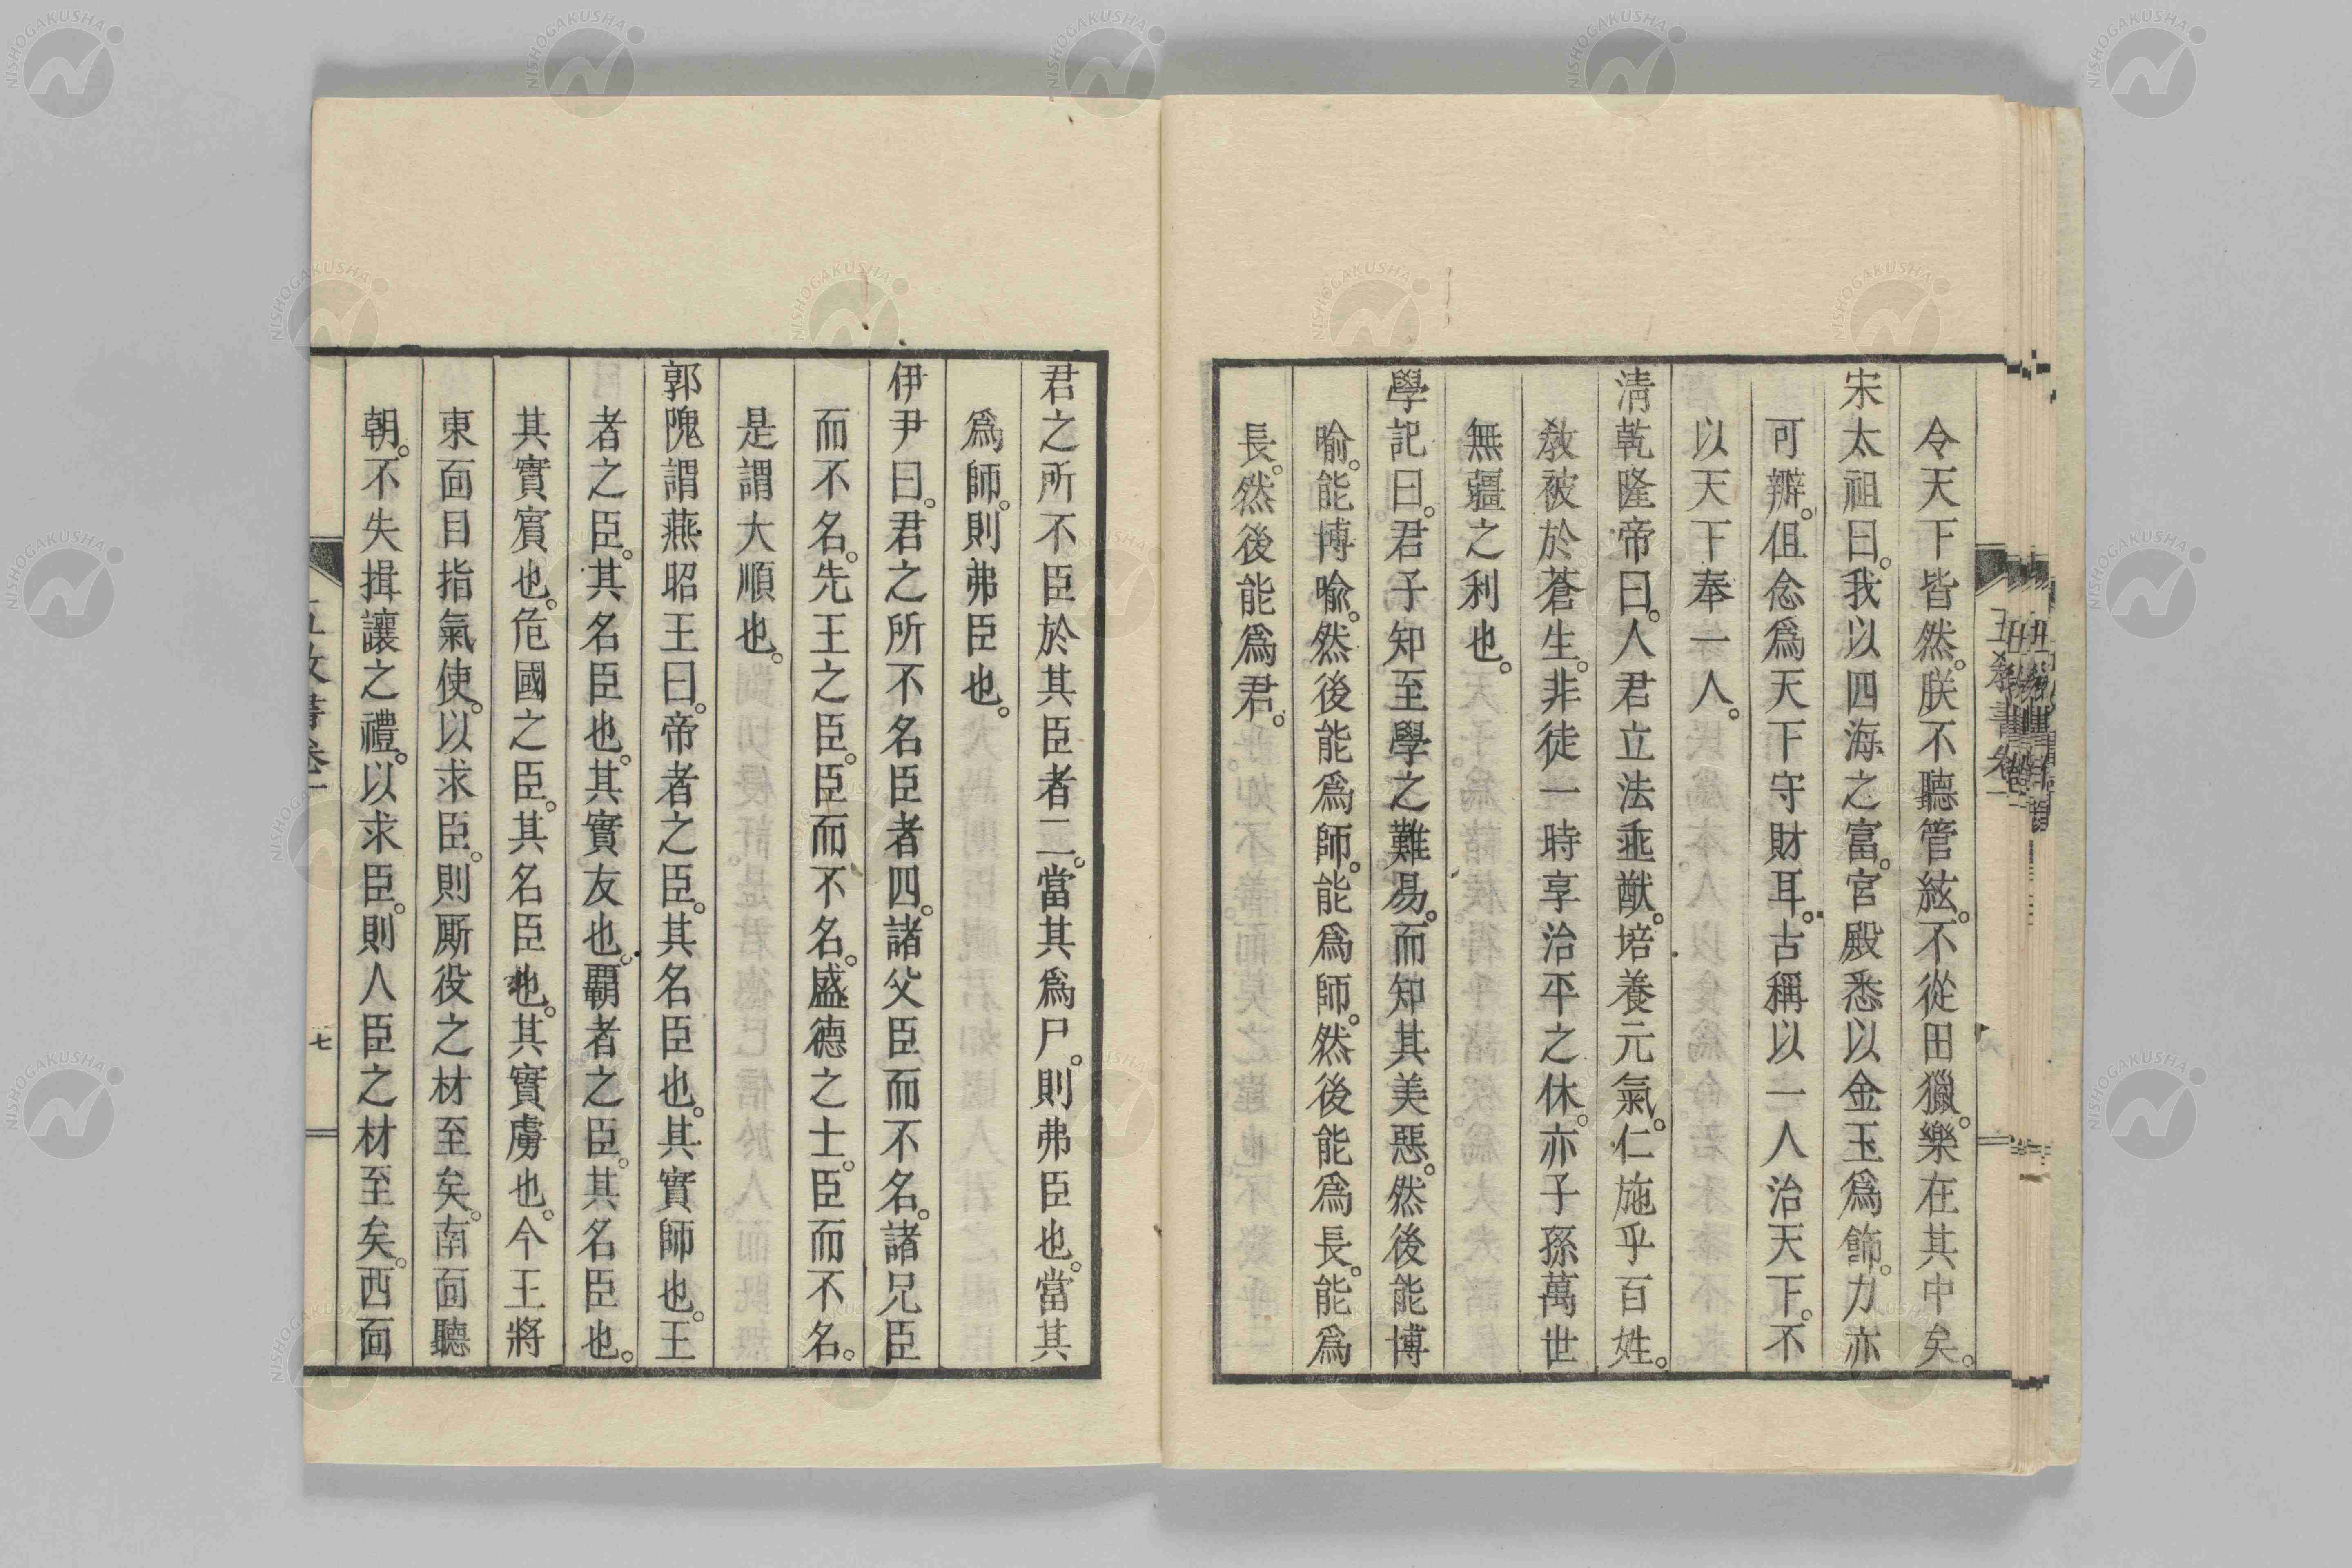 令天下皆然。朕不聽管絃。不從田獵。樂在其中矣。
宋太祖曰。我以四海之富。宮殿悉以金玉爲飾。力亦
可辦。但念爲天下守財耳。古稱以一人治天下。不
以天下奉一人。
清乾隆帝曰。人君立法垂猷。培養元氣。仁施乎百姓。
敎被於蒼生。非徒一時享治平之休。亦子孫萬世
無疆之利也。
學記曰。君子知至學之難易。而知其美惡。然後能博
喩。能博喩。然後能爲師。能爲師。然後能爲長。能爲
長。然後能爲君。
君之所不臣於其臣者二。當其爲尸。則弗臣也。當其
爲師。則弗臣也。
伊尹曰。君之所不名臣者四。諸父臣而不名。諸兄臣
而不名。先王之臣。臣而不名。盛德之士。臣而不名。
是謂大順也。
郭隗謂燕昭王曰。帝者之臣。其名臣也。其實師也。王
者之臣。其名臣也。其實友也。覇者之臣。其名臣也。
其實賓也。危國之臣。其名臣也。其實虜也。今王將
東面目指氣使。以求臣。則厮役之材至矣。南面聽
朝。不失揖讓之禮。以求臣。則人臣之材至矣。西面
七
NISHOGAKUSHA